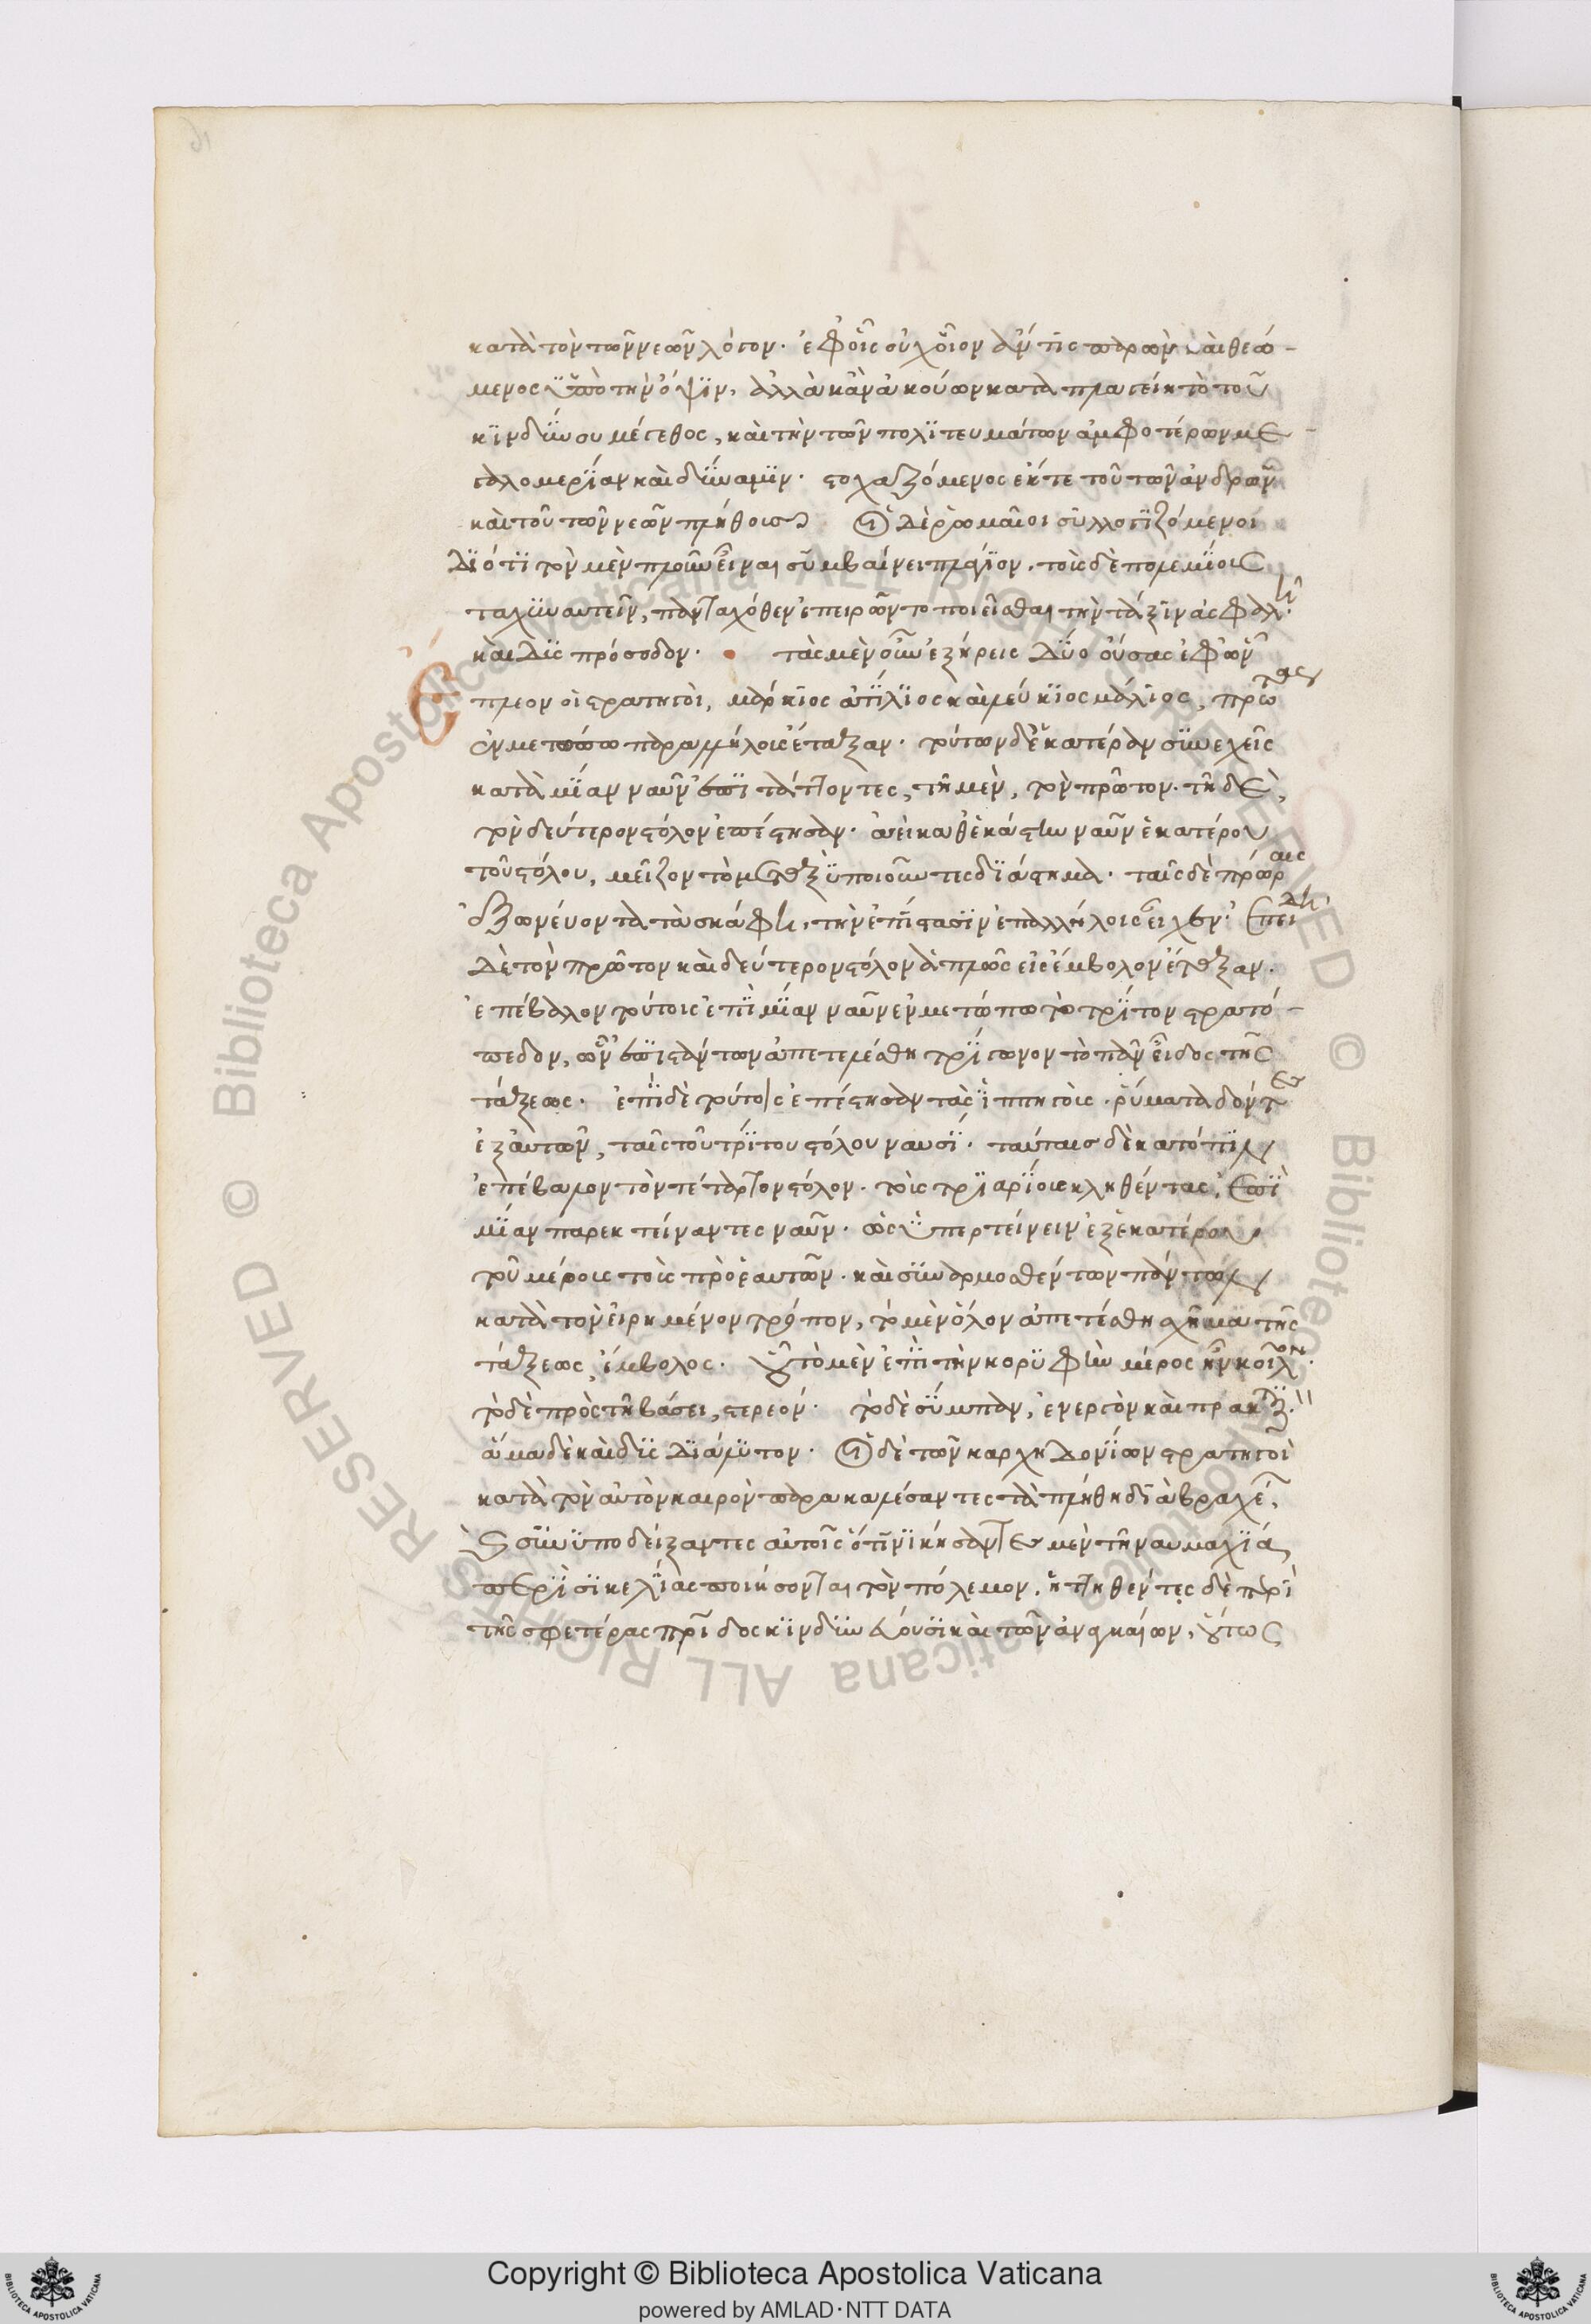 κατὰ τὸν τῶν νεῶν λόγον. ἐφ' οἷς οὐχ οἷον ἄν τις παρὼν καὶ θεώ-
μενος ὑπὸ τὴν ὄψιν, ἀλλὰ κἂν ἀκούων καταπλαγείη τὸ τοῦ
κινδύνου μέγεθος, καὶ τὴν τῶν πολιτευμάτων ἀμφοτέρων με-
γαλομερίαν καὶ δύναμιν. στοχαζόμενος ἔκ τε τοῦ τῶν ἀνδρῶν
καὶ τοῦ τῶν νεῶν πλήθους οἱ δὲ ῥωμαῖοι συλλογιζόμενοι
διότι τὸν μὲν πλοῦν εἶναι συμβαίνει πλάγιον, τοὺς δὲ πολεμίους
ταχυναυτεῖν, πανταχόθεν ἐπειρῶντο ποιεῖσθαι τὴν τάξιν ἀσφαλῆ
καὶ δὶς πρόσοδον. τὰς μὲν οὖν ἑξήρεις δύο οὔσας ἐφ' ὧν
ἔπλεον οἱ στρατηγοὶ, μάρκιος ἀτίλιος καὶ λεύκιος μάλιος, πρώτας
ἐν μετώπω παραλλήλους ἔταξαν. τούτων δ' ἑκατέραν συνεχεῖς
κατὰ μίαν ναῦν ἐπιτάττοντες, τῆ μὲν, τὸν πρῶτον. τῆ δὲ,
τὸν δεύτερον στόλον ἐπέστησαν. ἀεὶ καθ' ἑκάστην ναῦν ἑκατέρου
τοῦ στόλου, μεῖζον τὸ μεταξὺ ποιοῦντες διάστημα. ταῖς δὲ πρώραις
ἔξω νεύοντα τὰ σκάφη, τὴν ἐπίστασιν ἐπ' ἀλλήλοις εἶχεν. ἐπειδὴ
δὲ τὸν πρῶτον καὶ δεύτερον στόλον ἁπλῶς εἰς ἔμβολον ἔταξαν.
ἐπέβαλον τούτοις ἐπὶ μίαν ναῦν ἐν μετώπω τὸ τρίτον στρατό-
πεδον, ὧν ἐπιστάντων ἀπετελέσθη τρίγωνον τὸ πᾶν εἶδος τῆς
τάξεως. ἐπὶ δὲ τούτοις ἐπέστησαν τὰς ἱππηγοὺς. ῥύματα δόντες
ἐξ αὐτῶν, ταῖς τοῦ τρίτου στόλου ναυσί. ταύταις δὲ κατόπιν
ἐπέβαλον τὸν τέταρτον στόλον. τοὺς τριαρίους κληθέντας, ἐπὶ
μίαν παρεκτείναντες ναῦν. ὡς ὑπερτείνειν ἐξ ἑκατέρου
τοῦ μέρους τοὺς πρὸ ἑαυτῶν. καὶ συναρμοσθέντων πάντων
κατὰ τὸν εἰρημένον τρόπον, τὸ μὲν ὅλον ἀπετέσθη σχῆμα τῆς
τάξεως, ἔμβολος. οὗ τὸ μὲν ἐπὶ τὴν κορυφὴν μέρος ἦν κοῖλον.
τὸ δὲ πρὸς τῆ βάσει, στερεόν. τὸ δὲ σύμπαν, ἐνεργὸν καὶ πρακτικὸν.
ἅμα δὲ καὶ δὶς διάλυτον. οἱ δὲ τῶν καρχηδονίων στρατηγοὶ
κατὰ τὸν αὐτὸν καιρὸν παρακαλέσαντες τὰ πλήθη διὰ βραχέων
καὶ συνυποδείξαντες αὐτοῖς ὅτι νικήσαντες μὲν τῆ ναυμαχία
περὶ σικελίας ποιήσονται τὸν πόλεμον. ἡττηθέντες δὲ περὶ
τῆς σφετέρας πατρίδος κινδυνεύουσι καὶ τῶν ἀναγκαίων, οὕτως
Copyright © Biblioteca Apostolica Vaticana
powered by AMLAD·NTT DATA